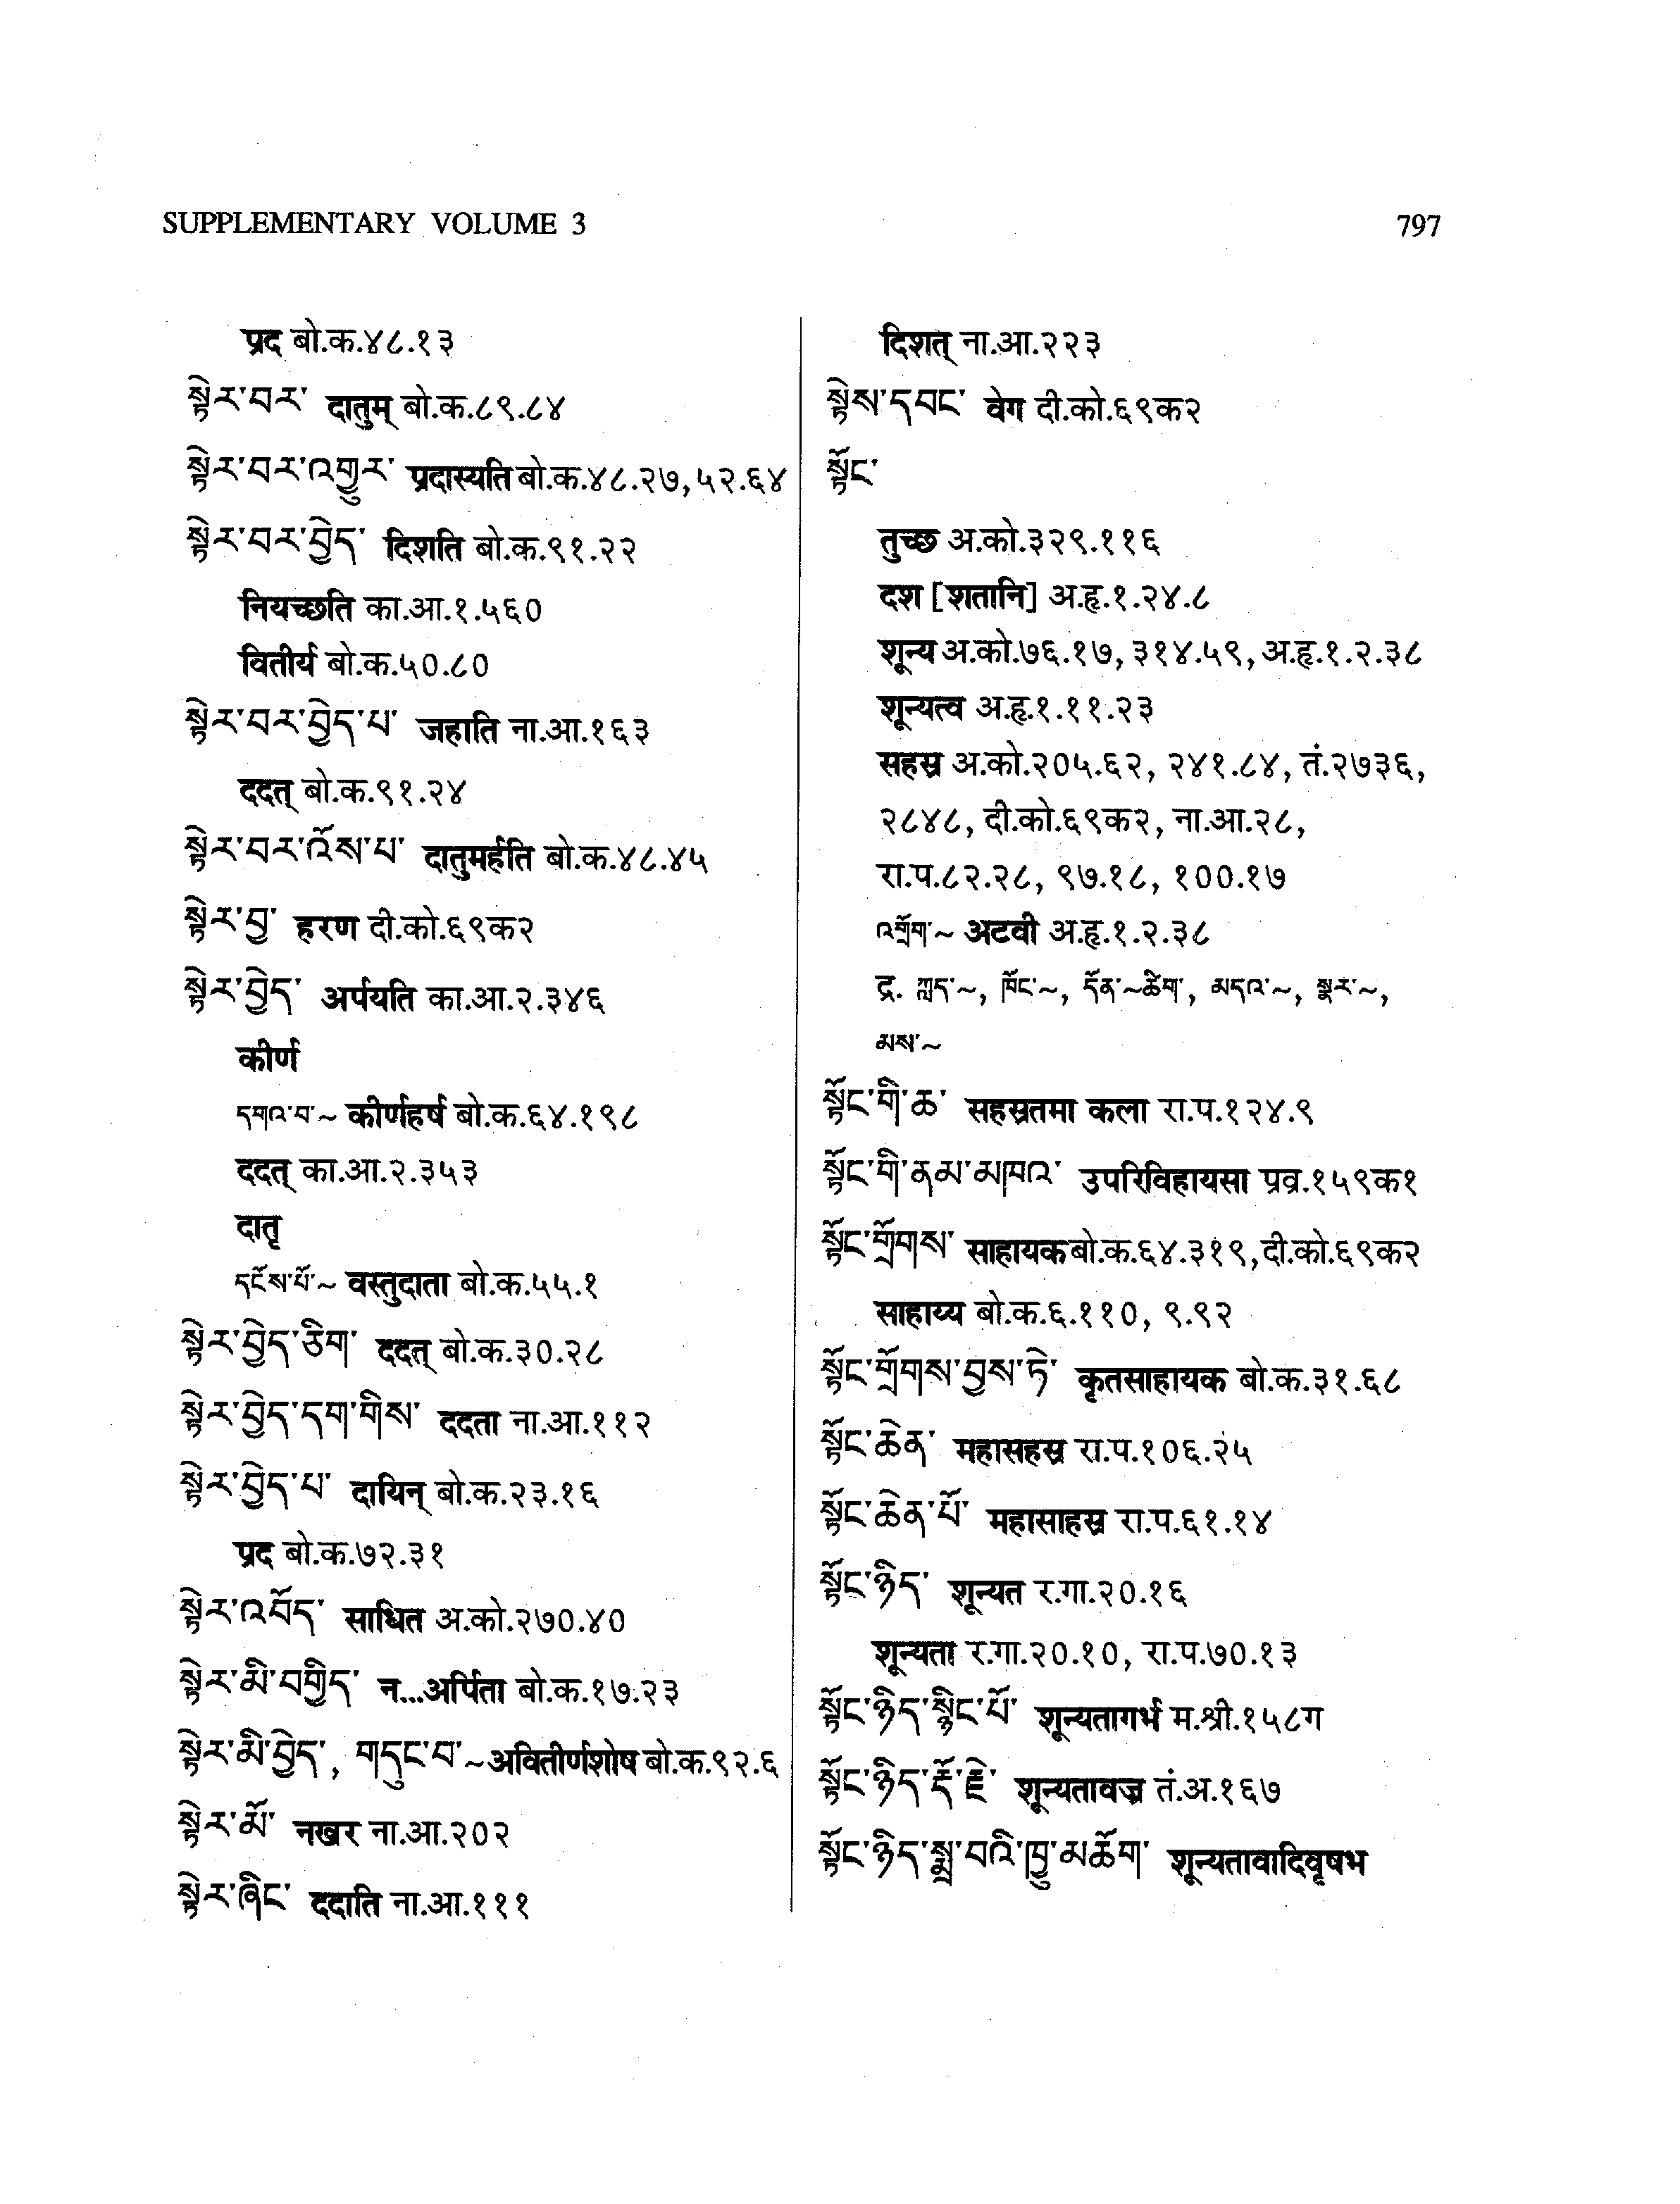 SUPPLEMENTARY VOLUME 3
797
प्रद बो.क.४८.१३
སྟེར་བར་ दातुम् बो.क.८९.८४
སྟེར་བར་འགྱུར་ प्रदास्यति बो.क.४८.२७, ५२.६४
སྟེར་བར་བྱེད་ दिशति बो.क.९१.२२
नियच्छति का.आ.१.५६०
वितीर्य बो.क.५०.८०
སྟེར་བར་བྱེད་པ་ जहाति ना.आ.१६३
ददत् बो.क.९१.२४
སྟེར་བར་འོས་པ་ दातुमर्हति बो.क.४८.४५
སྟེར་བྱ་ हरण दी.को.६९क२
སྟེར་བྱེད་ अर्पयति का.आ.२.३४६
कीर्ण
དགའ་བ་~ कीर्णहर्ष बो.क.६४.१९८
ददत् का.आ.२.३५३
दातृ
དངོས་པོ་~ वस्तुदाता बो.क.५५.१
སྟེར་བྱེད་ཅིག་ ददत् बो.क.३०.२८
སྟེར་བྱེད་དག་གིས་ ददता ना.आ.११२
སྟེར་བྱེད་པ་ दायिन् बो.क.२३.१६
प्रद बो.क.७२.३१
སྟེར་འབོད་ साधित अ.को.२७०.४०
སྟེར་མི་བགྱིད་ न...अर्पिता बो.क.१७.२३
སྟེར་མི་བྱེད་, གདུང་བ་~ अवितीर्णशोष बो.क.९२.६
སྟེར་མོ་ नखर ना.आ.२०२
སྟེར་ཞིང་ ददाति ना.आ.१११
दिशत् ना.आ.२२३
སྟེས་དབང་ वेग दी.को.६९क२
སྟོང་
तुच्छ अ.को.३२९.११६
दश [शतानि] अ.हृ.१.२४.८
शून्य अ.को.७६.१७, ३१४.५९, अ.हृ.१.२.३८
शून्यत्व अ.हृ.१.११.२३
सहस्र अ.को.२०५.६२, २४१.८४, तं.२७३६,
२८४८, दी.को.६९क२, ना.आ.२८,
रा.प.८२.२८, ९७.१८, १००.१७
འགྲོག་~ अटवी अ.हृ.१.२.३८
द्र. ཀླད་~, ཁོང་~, དོན་~ཚིག་, མདའ་~, སྣར་~,
མས་~
སྟོང་གི་ཆ་ सहस्रतमा कला रा.प.१२४.९
སྟོང་གི་ནམ་མཁའ་ उपरिविहायसा प्रव्र.१५९क१
སྟོང་གྲོགས་ साहायक बो.क.६४.३१९, दी.को.६९क२
साहाय्य बो.क.६.११०, ९.९२
སྟོང་གྲོགས་བྱས་ཏེ་ कृतसाहायक बो.क.३१.६८
སྟོང་ཆེན་ महासहस्र रा.प.१०६.२५
སྟོང་ཆེན་པོ་ महासाहस्र रा.प.६१.१४
སྟོང་ཉིད་ शून्यत र.गा.२०.१६
शून्यता र.गा.२०.१०, रा.प.७०.१३
སྟོང་ཉིད་སྙིང་པོ་ शून्यतागर्भ म.श्री.१५८ग
སྟོང་ཉིད་རྡོ་རྗེ་ शून्यतावज्र तं.अ.१६७
སྟོང་ཉིད་སྨྲ་བའི་ཁྱུ་མཆོག་ शून्यतावादिवृषभ